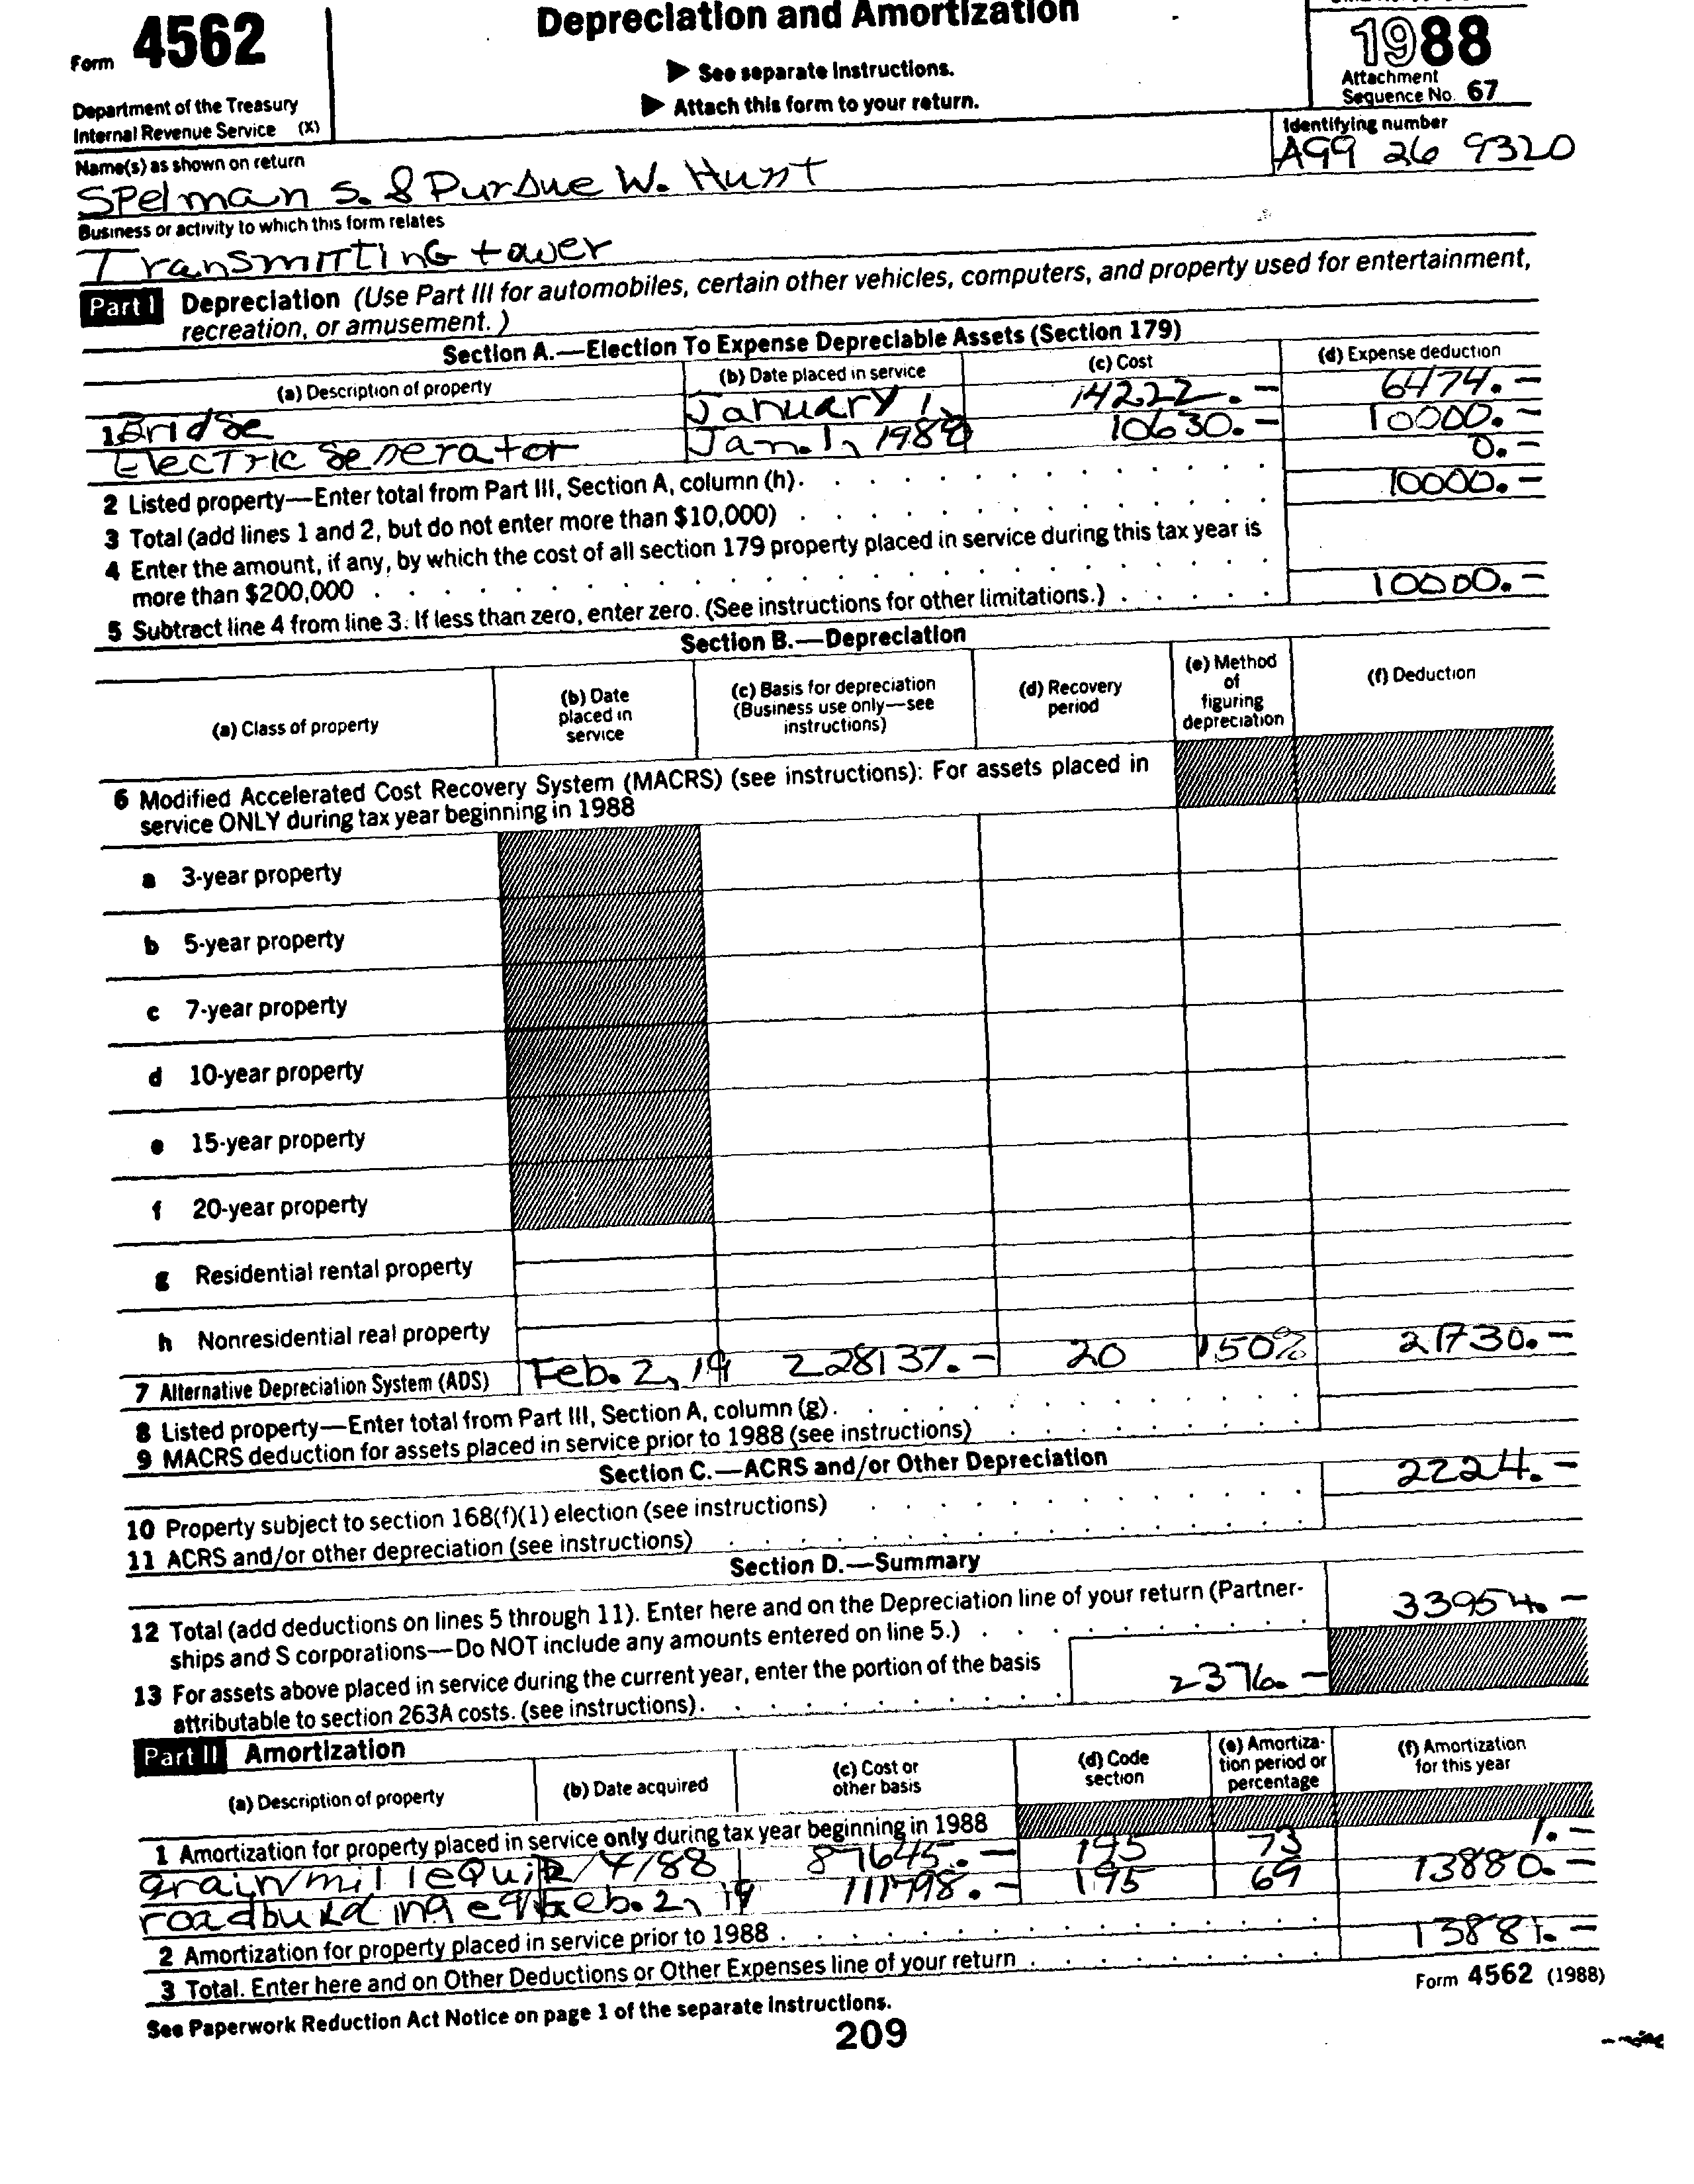 Form 4562
Depreciation and Amortization
1988
▶ See separate Instructions.
▶ Attach this form to your return.
Attachment
Sequence No. 67
Department of the Treasury
Internal Revenue Service (X)
Name(s) as shown on return
Identifying number
Spelman S. & Purdue W. Hunt
A99 26 9320
Business or activity to which this form relates
Transmitting tower
Part I Depreciation (Use Part III for automobiles, certain other vehicles, computers, and property used for entertainment,
recreation, or amusement.)
Section A.—Election To Expense Depreciable Assets (Section 179)
(a) Description of property (b) Date placed in service (c) Cost (d) Expense deduction
1 Bridge January 1, 14222.– 6474.–
Electric generator Jan. 1, 1988 10630.– 10000.–
2 Listed property—Enter total from Part III, Section A, column (h). 0.–
3 Total (add lines 1 and 2, but do not enter more than $10,000) 10000.–
4 Enter the amount, if any, by which the cost of all section 179 property placed in service during this tax year is
more than $200,000
5 Subtract line 4 from line 3. If less than zero, enter zero. (See instructions for other limitations.) 10000.–
Section B.—Depreciation
(a) Class of property
(b) Date
placed in
service
(c) Basis for depreciation
(Business use only—see
instructions)
(d) Recovery
period
(e) Method
of
figuring
depreciation
(f) Deduction
6 Modified Accelerated Cost Recovery System (MACRS) (see instructions): For assets placed in
service ONLY during tax year beginning in 1988
a 3-year property
b 5-year property
c 7-year property
d 10-year property
e 15-year property
f 20-year property
g Residential rental property
h Nonresidential real property
7 Alternative Depreciation System (ADS) Feb. 2, 19 228137.– 20 150% 21730.–
8 Listed property—Enter total from Part III, Section A, column (g).
9 MACRS deduction for assets placed in service prior to 1988 (see instructions)
Section C.—ACRS and/or Other Depreciation
10 Property subject to section 168(f)(1) election (see instructions) 2224.–
11 ACRS and/or other depreciation (see instructions)
Section D.—Summary
12 Total (add deductions on lines 5 through 11). Enter here and on the Depreciation line of your return (Partner-
ships and S corporations—Do NOT include any amounts entered on line 5.) 33954.–
13 For assets above placed in service during the current year, enter the portion of the basis
attributable to section 263A costs. (see instructions). 2376.–
Part II Amortization
(a) Description of property
(b) Date acquired
(c) Cost or
other basis
(d) Code
section
(e) Amortiza-
tion period or
percentage
(f) Amortization
for this year
1 Amortization for property placed in service only during tax year beginning in 1988
grain/mill equip 2/4/88 87645.– 195 73 1.–
roadbuilding eq Feb. 2, 19 111798.– 195 69 13880.–
2 Amortization for property placed in service prior to 1988
3 Total. Enter here and on Other Deductions or Other Expenses line of your return 13881.–
See Paperwork Reduction Act Notice on page 1 of the separate Instructions.
Form 4562 (1988)
209